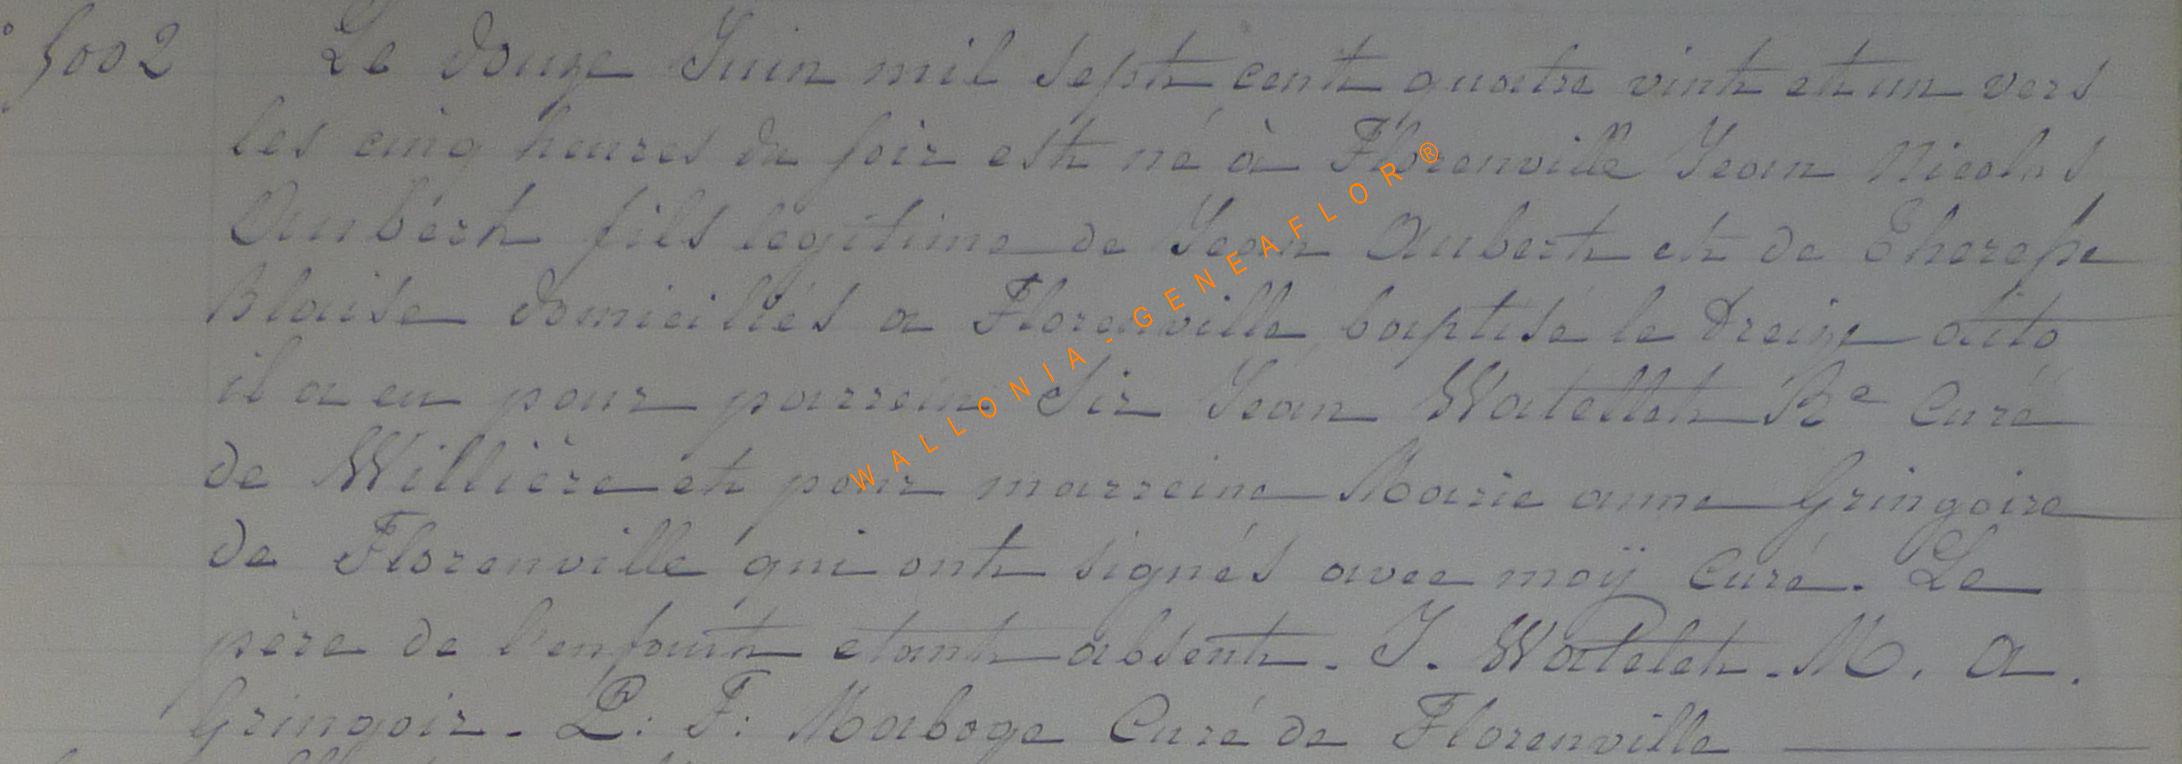 5002 Le douze Juin mil sept cent quatre vint et un vers
les cinq heures du soir est né à Florenville Jean Nicolas
Aubert fils légitime de Jean Aubert et de Therese
Blaise domiciliés a Florenville baptisé le treize dito
il a eu pour parrein Sir Jean Watellet Re Curé
de Willière et pour marreine Marie anne Gringoire
de Florenville qui ont signés avec moÿ Curé. Le
père de l'enfant etant absent. J. Watelet. M. A.
Gringoir. P. F: Maboge Curé de Florenville
WALLONIA - GENEAFLOR ®